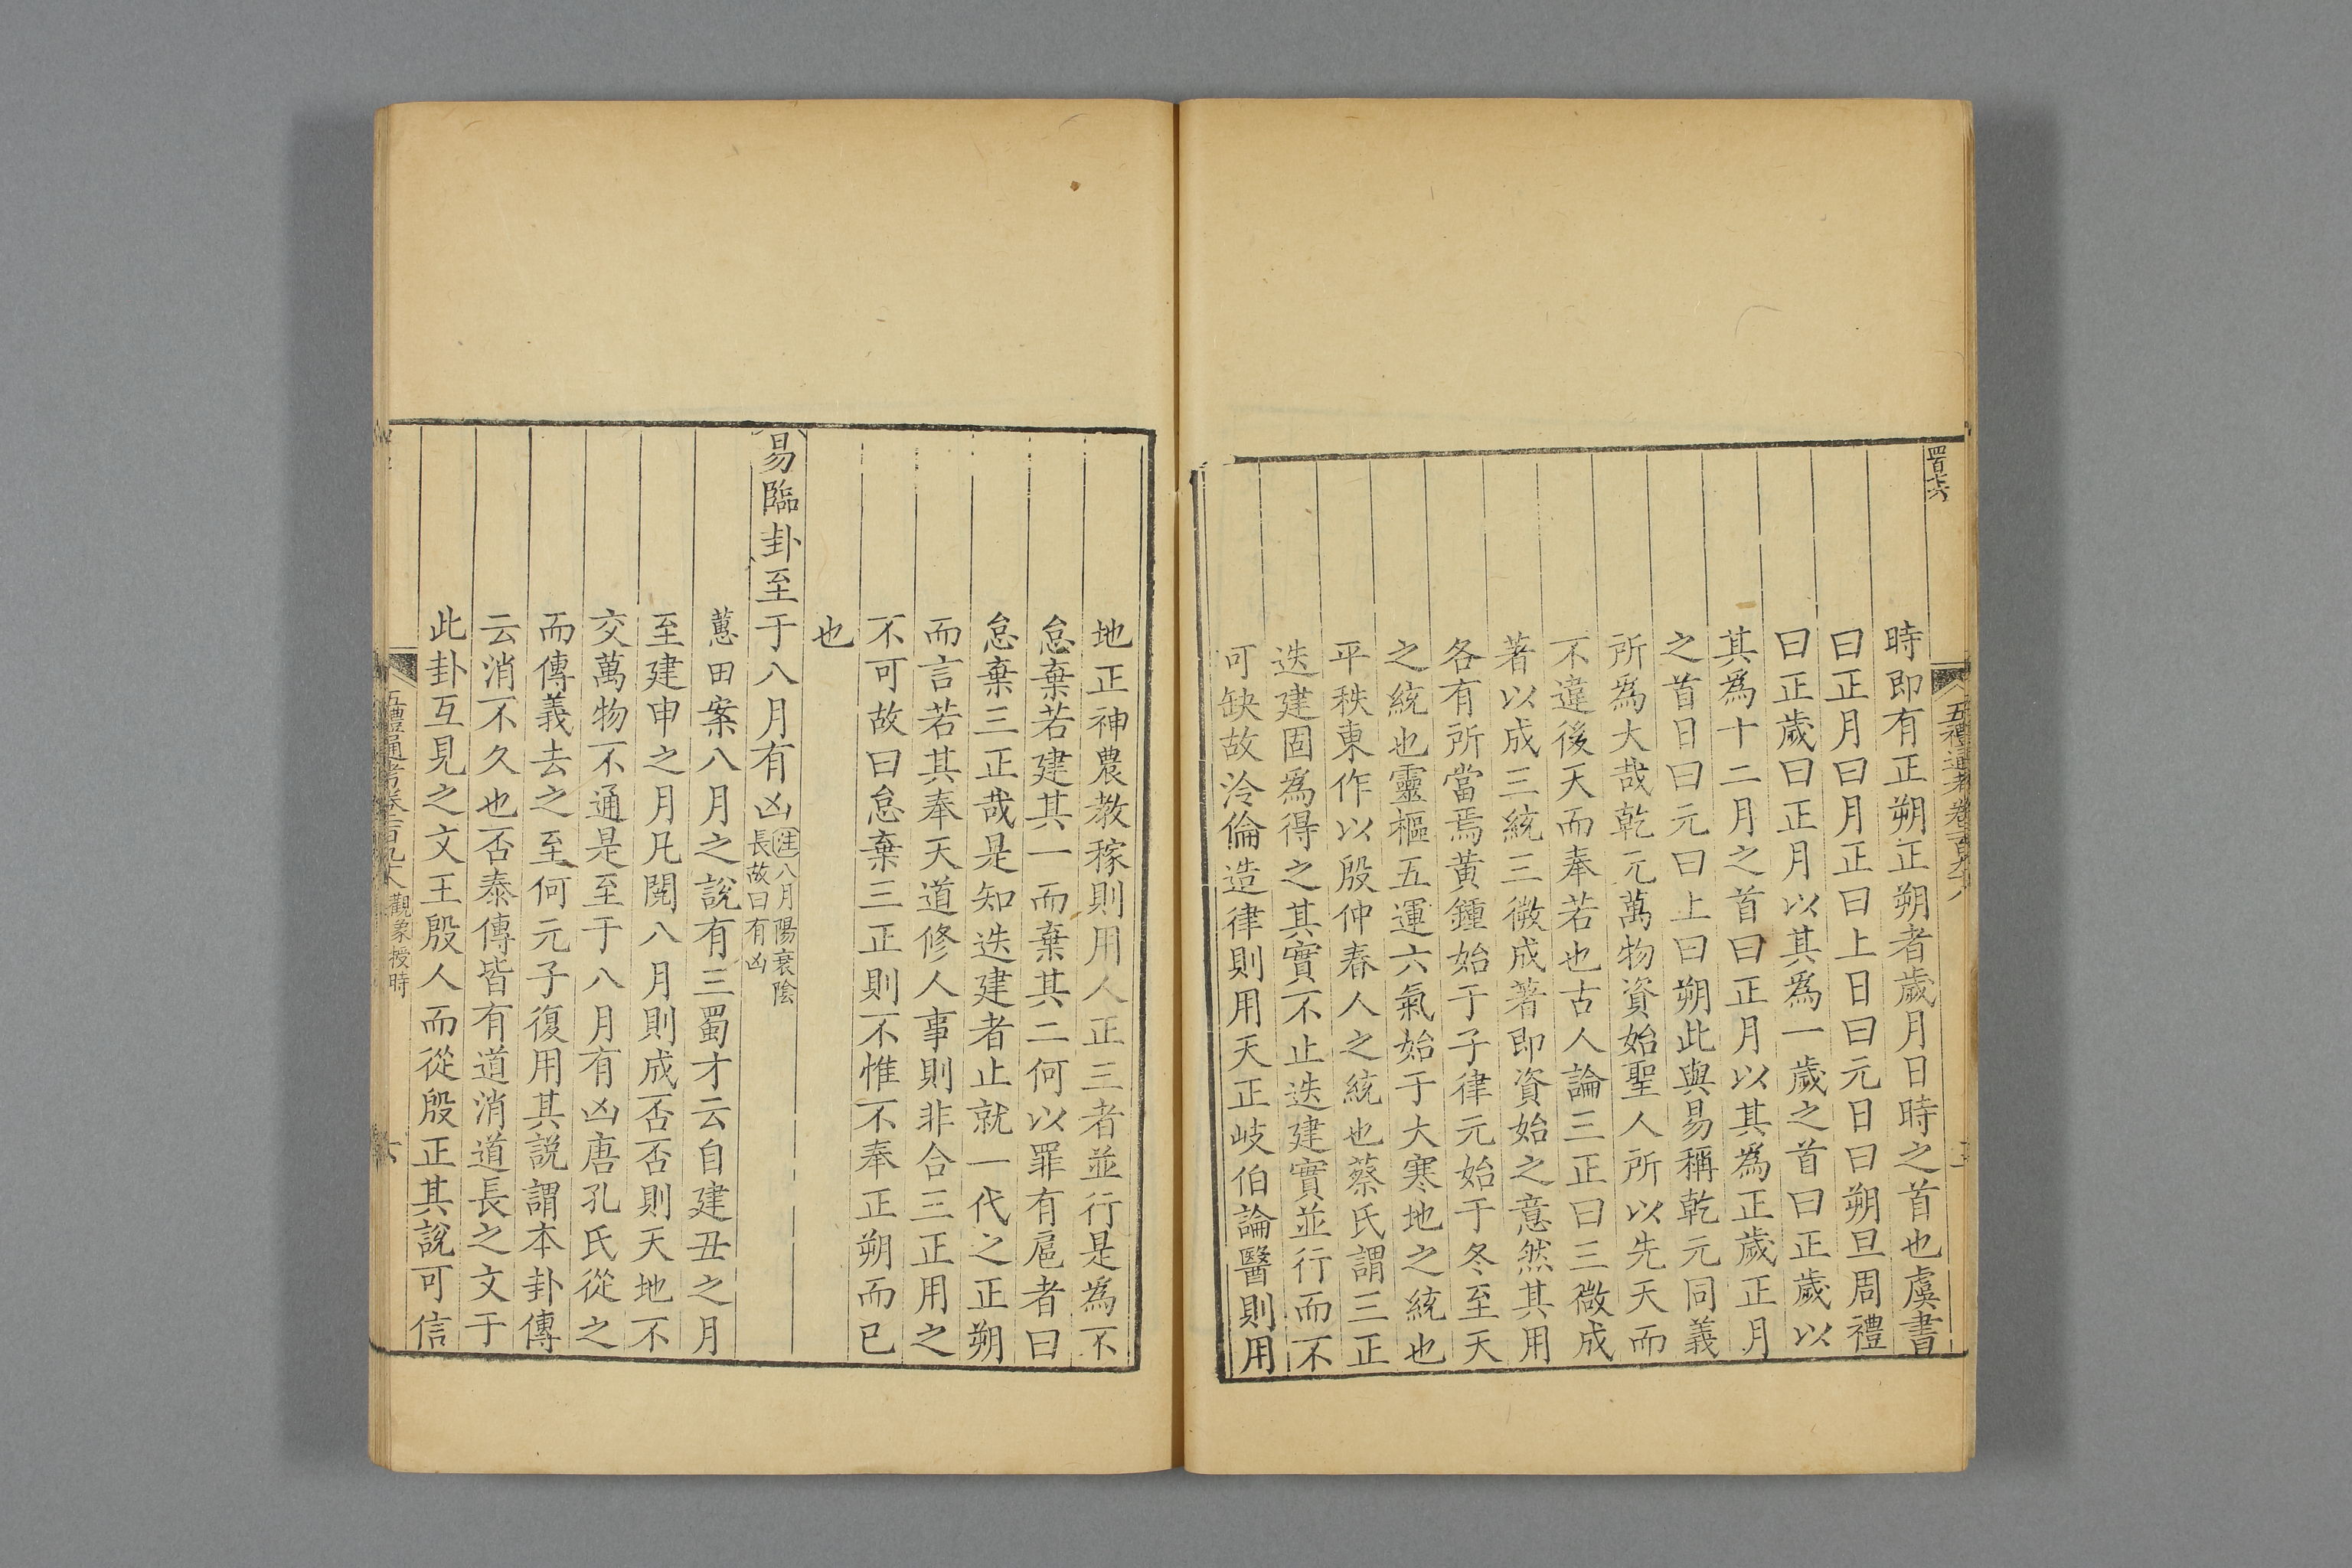 時即有正朔正朔者歲月日時之首也虞書
曰正月曰月正曰上日曰元日曰朔旦周禮
曰正歲曰正月以其爲一歲之首曰正歲以
其爲十二月之首曰正月以其爲正歲正月
之首日曰元曰上曰朔此與易稱乾元同義
所爲大哉乾元萬物資始聖人所以先天而
不違後天而奉若也古人論三正曰三微成
著以成三統三微成著即資始之意然其用
各有所當焉黃鍾始于子律元始于冬至天
之統也靈樞五運六氣始于大寒地之統也
平秩東作以殷仲春人之統也蔡氏謂三正
迭建固爲得之其實不止迭建實並行而不
可缺故泠倫造律則用天正岐伯論醫則用
地正神農教稼則用人正三者並行是為不
怠棄若建其一而棄其二何以罪有扈者曰
怠棄三正哉是知迭建者止就一代之正朔
而言若其奉天道修人事則非合三正用之
不可故曰怠棄三正則不惟不奉正朔而已
也
易臨卦至于八月有凶注八月陽衰陰
長故曰有凶
蕙田案八月之說有三蜀才云自建丑之月
至建申之月凡閱八月則成否否則天地不
交萬物不通是至于八月有凶唐孔氏從之
而傳義去之至何元子復用其説謂本卦傳
云消不久也否泰傳皆有道消道長之文于
此卦互見之文王殷人而從殷正其說可信
五禮通考卷二百九十八 觀象授時